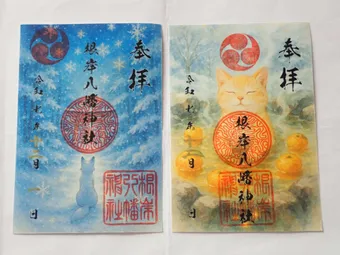 奉拝
根岸八幡神社
令和七年 月 日
根岸
八幡
神社
奉拝
根岸八幡神社
令和七年十二月 日
根岸
八幡
神社